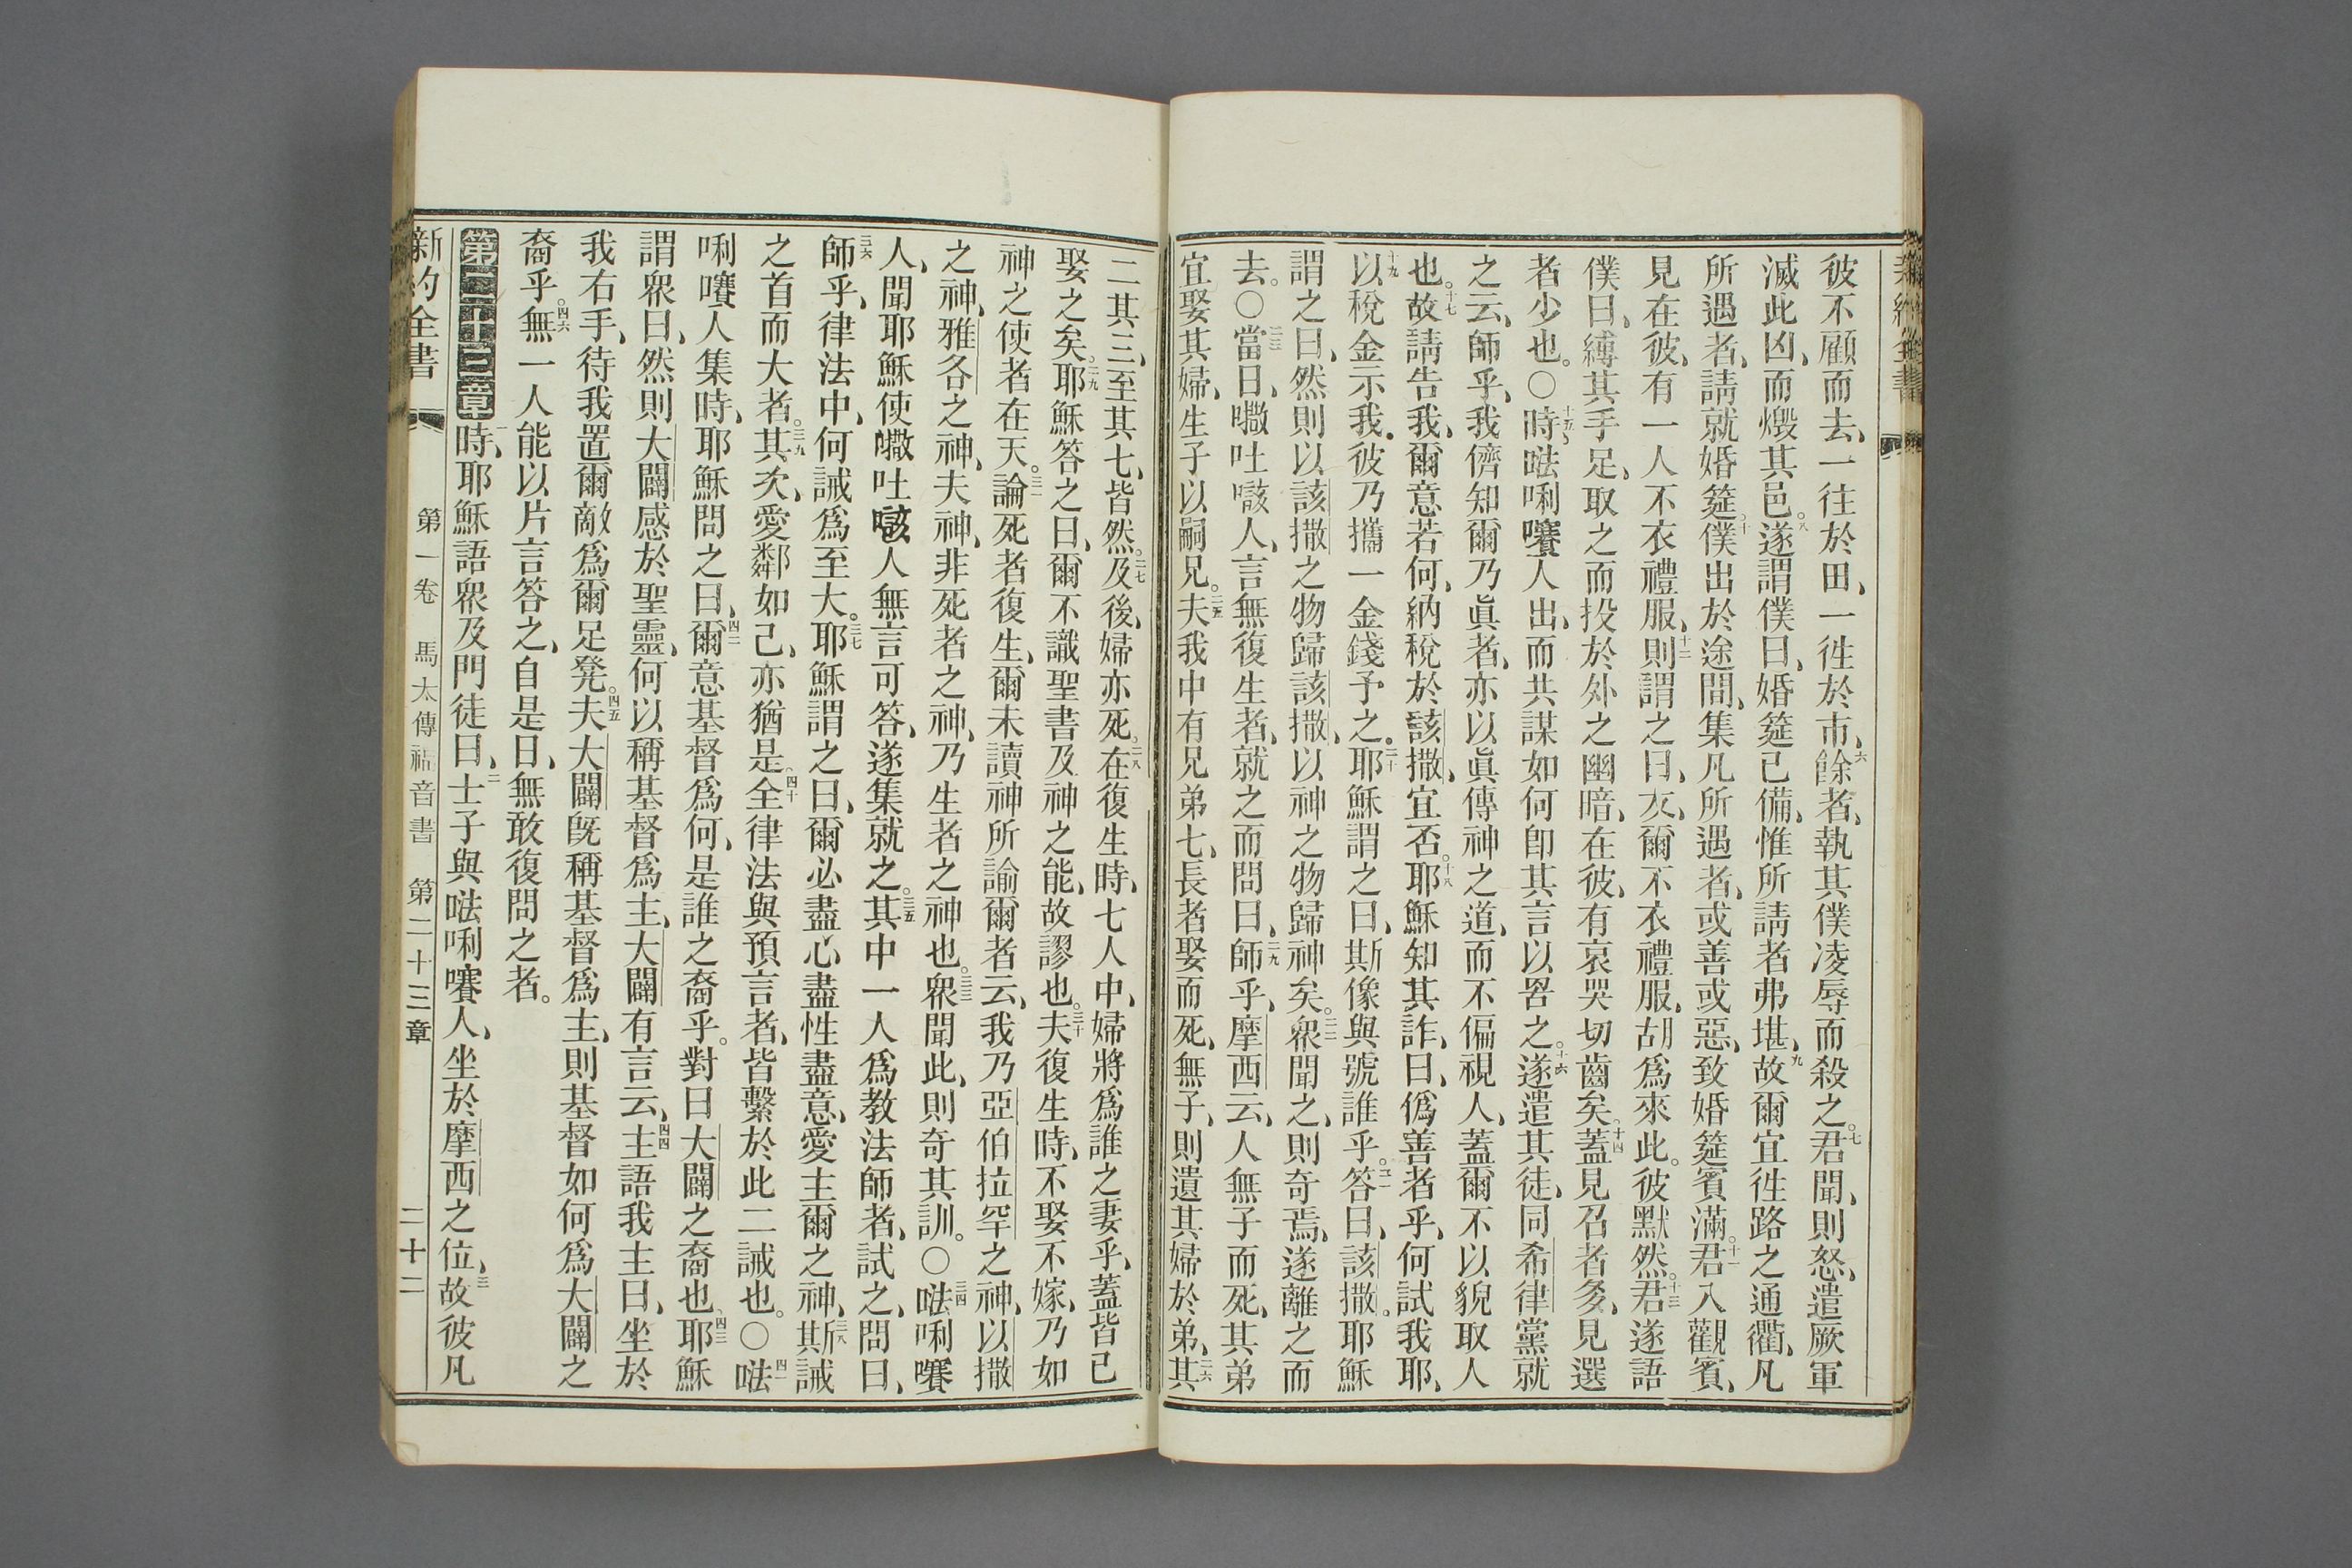 彼不顧而去、一往於田、一徃於市、六餘者、執其僕凌辱而殺之。七君聞、則怒、遣厥軍
滅此凶、而燬其邑。八遂謂僕曰、婚筵已備、惟所請者弗堪、九故爾宜徃路之通衢、凡
所遇者、請就婚筵。十僕出於途間、集凡所遇者、或善或惡、致婚筵賓滿。十一君入觀賓、
見在彼、有一人不衣禮服、十二則謂之曰、友、爾不衣禮服、胡爲來此。彼默然。十三君遂語
僕曰、縛其手足、取之而投於外之幽暗、在彼、有哀哭切齒矣。十四蓋見召者多、見選
者少也。〇十五時、𠵽唎嚽人出、而共謀如何卽其言以罟之。十六遂遣其徒、同希律黨就
之云、師乎、我儕知爾乃眞者、亦以眞傳神之道、而不偏視人、蓋爾不以貌取人
也。十七故請告我、爾意若何、納稅於該撒、宜否。十八耶穌知其詐、曰、僞善者乎、何試我耶、
十九以稅金示我。彼乃攜一金錢予之。二十耶穌謂之曰、斯像與號誰乎。二一答曰、該撒。耶穌
謂之曰、然則以該撒之物歸該撒、以神之物歸神矣。二二衆聞之、則奇焉、遂離之而
去。〇二三當日、𡃤吐㗢人、言無復生者、就之而問曰、二四師乎、摩西云、人無子而死、其弟
宜娶其婦、生子以嗣兄。二五夫我中有兄弟七、長者娶而死、無子、則遺其婦於弟、二六其
二其三、至其七、皆然。二七及後、婦亦死。二八在復生時、七人中、婦將爲誰之妻乎、蓋皆已
娶之矣。二九耶穌答之曰、爾不識聖書及神之能、故謬也。三十夫復生時、不娶不嫁、乃如
神之使者在天。三一論死者復生、爾未讀神所諭爾者云、三二我乃亞伯拉罕之神、以撒
之神、雅各之神、夫神、非死者之神、乃生者之神也。三三衆聞此、則奇其訓。〇三四𠵽唎嚽
人、聞耶穌使𡃤吐㗢人無言可答、遂集就之。三五其中一人爲教法師者、試之、問曰、
三六師乎、律法中、何誡爲至大。三七耶穌謂之曰、爾必盡心盡性盡意、愛主爾之神、三八斯誡
之首而大者。三九其次、愛鄰如己、亦猶是。四十全律法與預言者、皆繫於此二誡也。〇四一𠵽
唎嚽人集時、耶穌問之曰、四二爾意基督爲何、是誰之裔乎。對曰大闢之裔也、四三耶穌
謂衆曰、然則大闢感於聖靈、何以稱基督爲主、大闢有言云、四四主語我主曰、坐於
我右手、待我置爾敵爲爾足凳。四五夫大闢旣稱基督爲主、則基督如何爲大闢之
裔乎。四六無一人能以片言答之、自是日、無敢復問之者。
第二十三章 一時、耶穌語衆及門徒曰、二士子與𠵽唎嚽人、坐於摩西之位、三故彼凡
新約全書 第一卷 馬太傳福音書 第二十三章 二十二